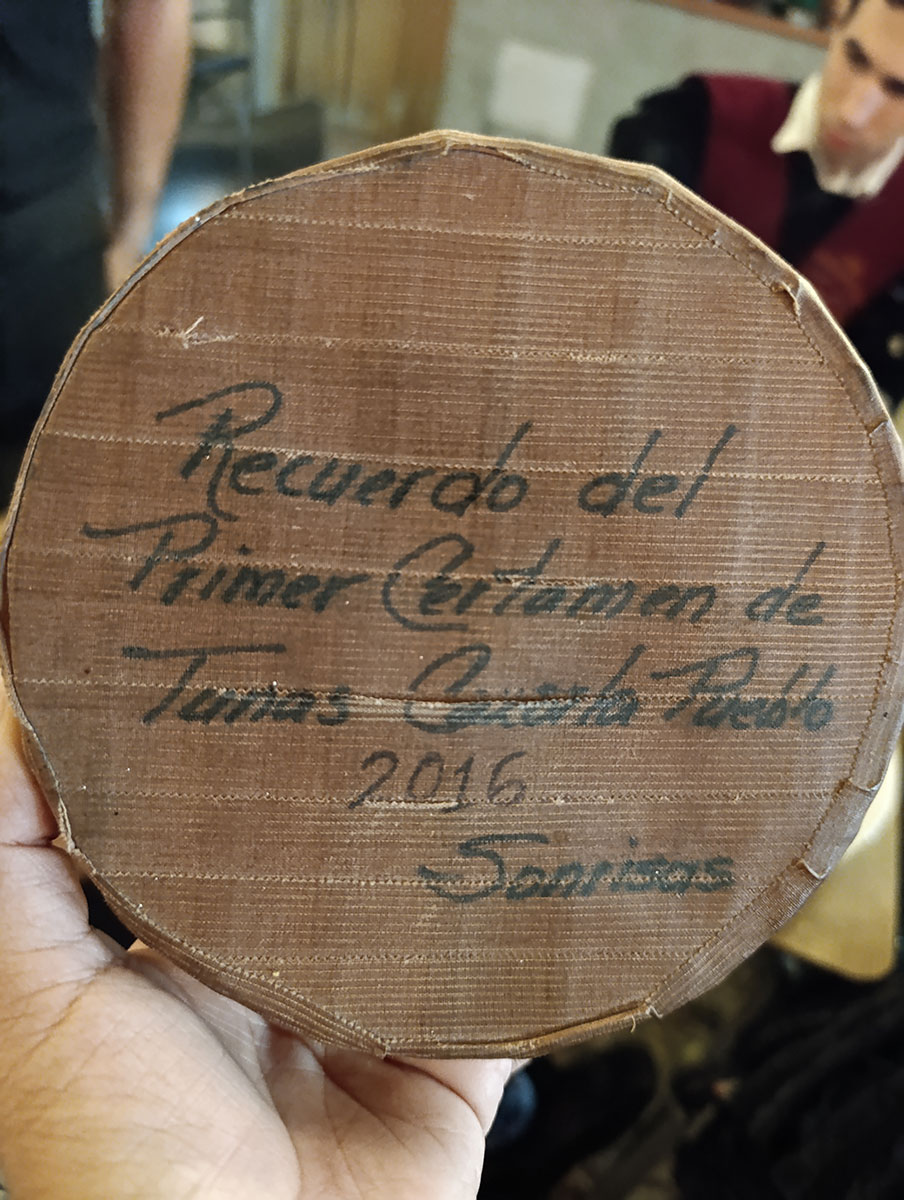 Recuerdo del
Primer Certamen de
Tunas Pueblo
2016
Sonrisas